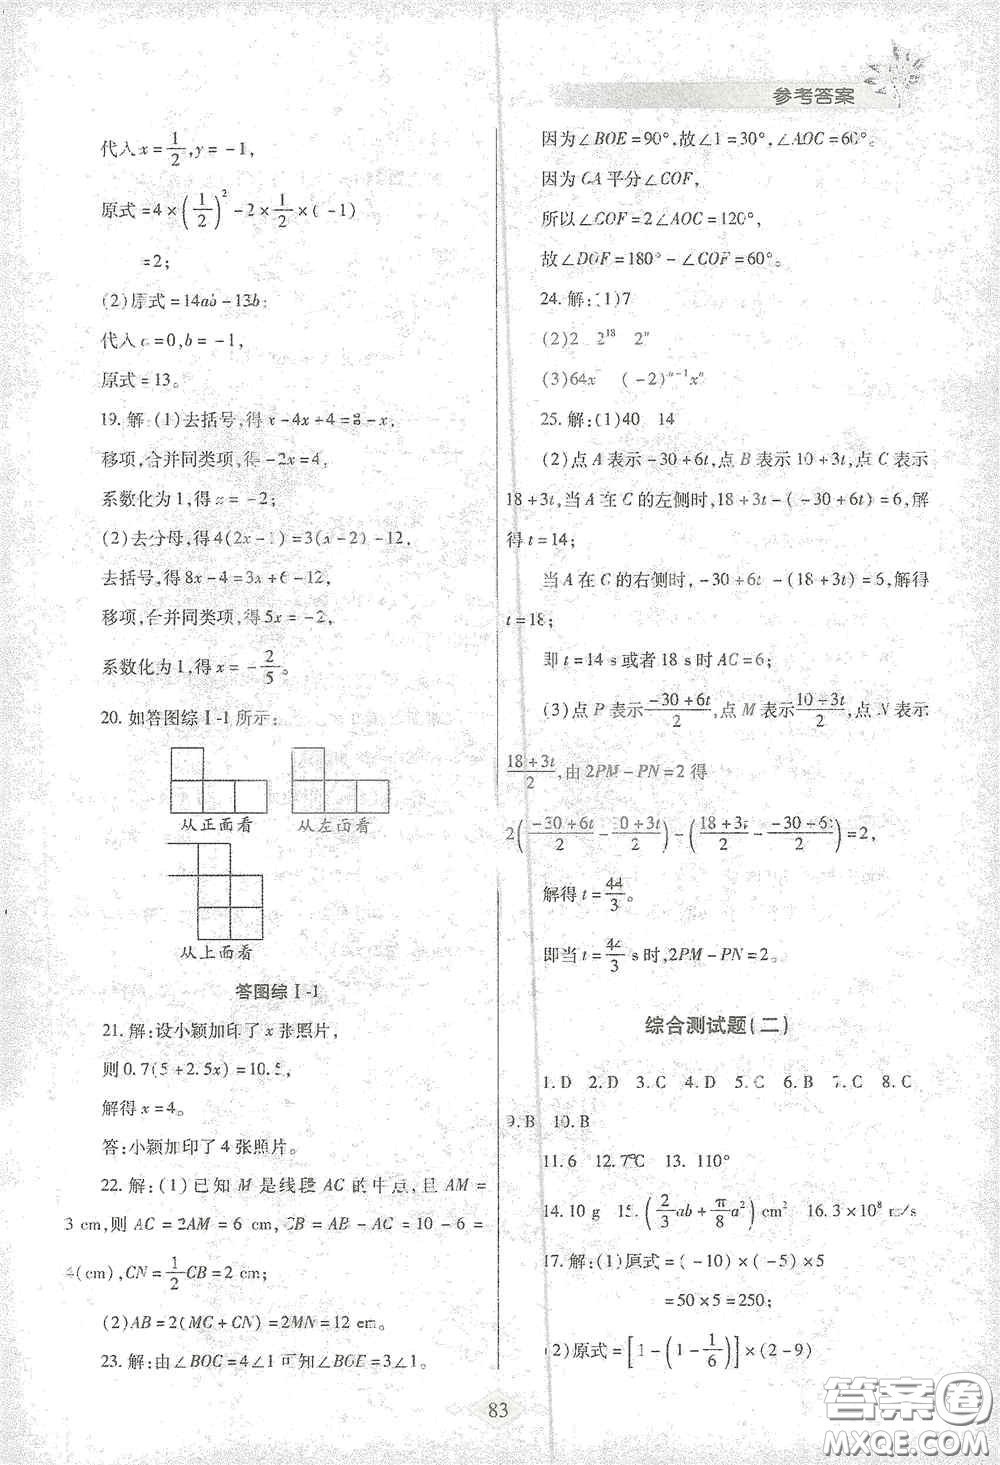 参考答案
代入x=1/2,y=-1,
原式=4×(1/2)²-2×1/2×(-1)
=2;
(2)原式=14ab-13b;
代入a=0,b=-1,
原式=13。
19.解:(1)去括号,得x-4x+4=8-x,
移项,合并同类项,得-2x=4,
系数化为1,得x=-2;
(2)去分母,得4(2x-1)=3(x+2)-12,
去括号,得8x-4=3x+6-12,
移项,合并同类项,得5x=-2,
系数化为1,得x=-2/5。
20.如答图综Ⅰ-1所示:
从正面看 从左面看
从上面看
答图综Ⅰ-1
21.解:设小颖加印了x张照片,
则0.7(5+2.5x)=10.5,
解得x=4。
答:小颖加印了4张照片。
22.解:(1)已知M是线段AC的中点,且AM=
3 cm,则AC=2AM=6 cm,CB=AB-AC=10-6=
4(cm),CN=1/2CB=2 cm;
(2)AB=2(MC+CN)=2MN=12 cm。
23.解:由∠BOC=4∠1可知∠BOE=3∠1。
因为∠BOE=90°,故∠1=30°,∠AOC=60°。
因为OA平分∠COF,
所以∠COF=2∠AOC=120°,
故∠DOF=180°-∠COF=60°。
24.解:(1)7
(2)2 2¹⁸ 2ⁿ
(3)64x (-2)ⁿ⁻¹xⁿ
25.解:(1)40 14
(2)点A表示-30+6t,点B表示10+3t,点C表示
18+3t,当A在C的左侧时,18+3t-(-30+6t)=6,解
得t=14;
当A在C的右侧时,-30+6t-(18+3t)=6,解得
t=18;
即t=14 s或者18 s时AC=6;
(3)点P表示(-30+6t)/2,点M表示(10+3t)/2,点N表示
(18+3t)/2,由2PM-PN=2得
2((-30+6t)/2-(10+3t)/2)-((18+3t)/2-(-30+6t)/2)=2,
解得t=44/3。
即当t=44/3 s时,2PM-PN=2。
综合测试题(二)
1.D 2.D 3.C 4.D 5.C 6.B 7.C 8.C
9.B 10.B
11.6 12.7℃ 13.110°
14.10 g 15.(2/3ab+π/8a²) cm² 16.3×10⁸ m/s
17.解:(1)原式=(-10)×(-5)×5
=50×5=250;
(2)原式=[1-(1-1/6)]×(2-9)
83
答案圈
MXQE.COM